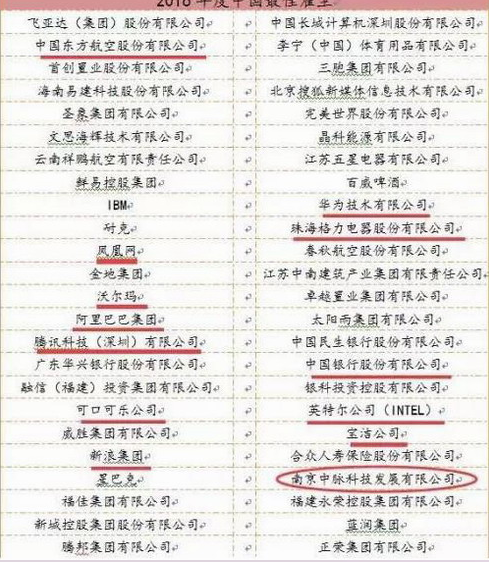 2016 年度中国最佳雇主
飞亚达（集团）股份有限公司 中国长城计算机深圳股份有限公司
中国东方航空股份有限公司 李宁（中国）体育用品有限公司
首创置业股份有限公司 三胞集团有限公司
海南易建科技股份有限公司 北京搜狐新媒体信息技术有限公司
圣象集团有限公司 完美世界股份有限公司
文思海辉技术有限公司 晶科能源有限公司
云南祥鹏航空有限责任公司 江苏五星电器有限公司
鲜易控股集团 百威啤酒
IBM 华为技术有限公司
耐克 珠海格力电器股份有限公司
凤凰网 春秋航空股份有限公司
金地集团 江苏中南建筑产业集团有限责任公司
沃尔玛 卓越置业集团有限公司
阿里巴巴集团 太阳雨集团有限公司
腾讯科技（深圳）有限公司 中国民生银行股份有限公司
广东华兴银行股份有限公司 中国银行股份有限公司
融信（福建）投资集团有限公司 银科投资控股有限公司
可口可乐公司 英特尔公司（INTEL）
威胜集团有限公司 宝洁公司
新浪集团 合众人寿保险股份有限公司
星巴克 南京中脉科技发展有限公司
福佳集团有限公司 福建永荣控股集团有限公司
新城控股集团股份有限公司 蓝润集团
腾邦集团有限公司 正荣集团有限公司